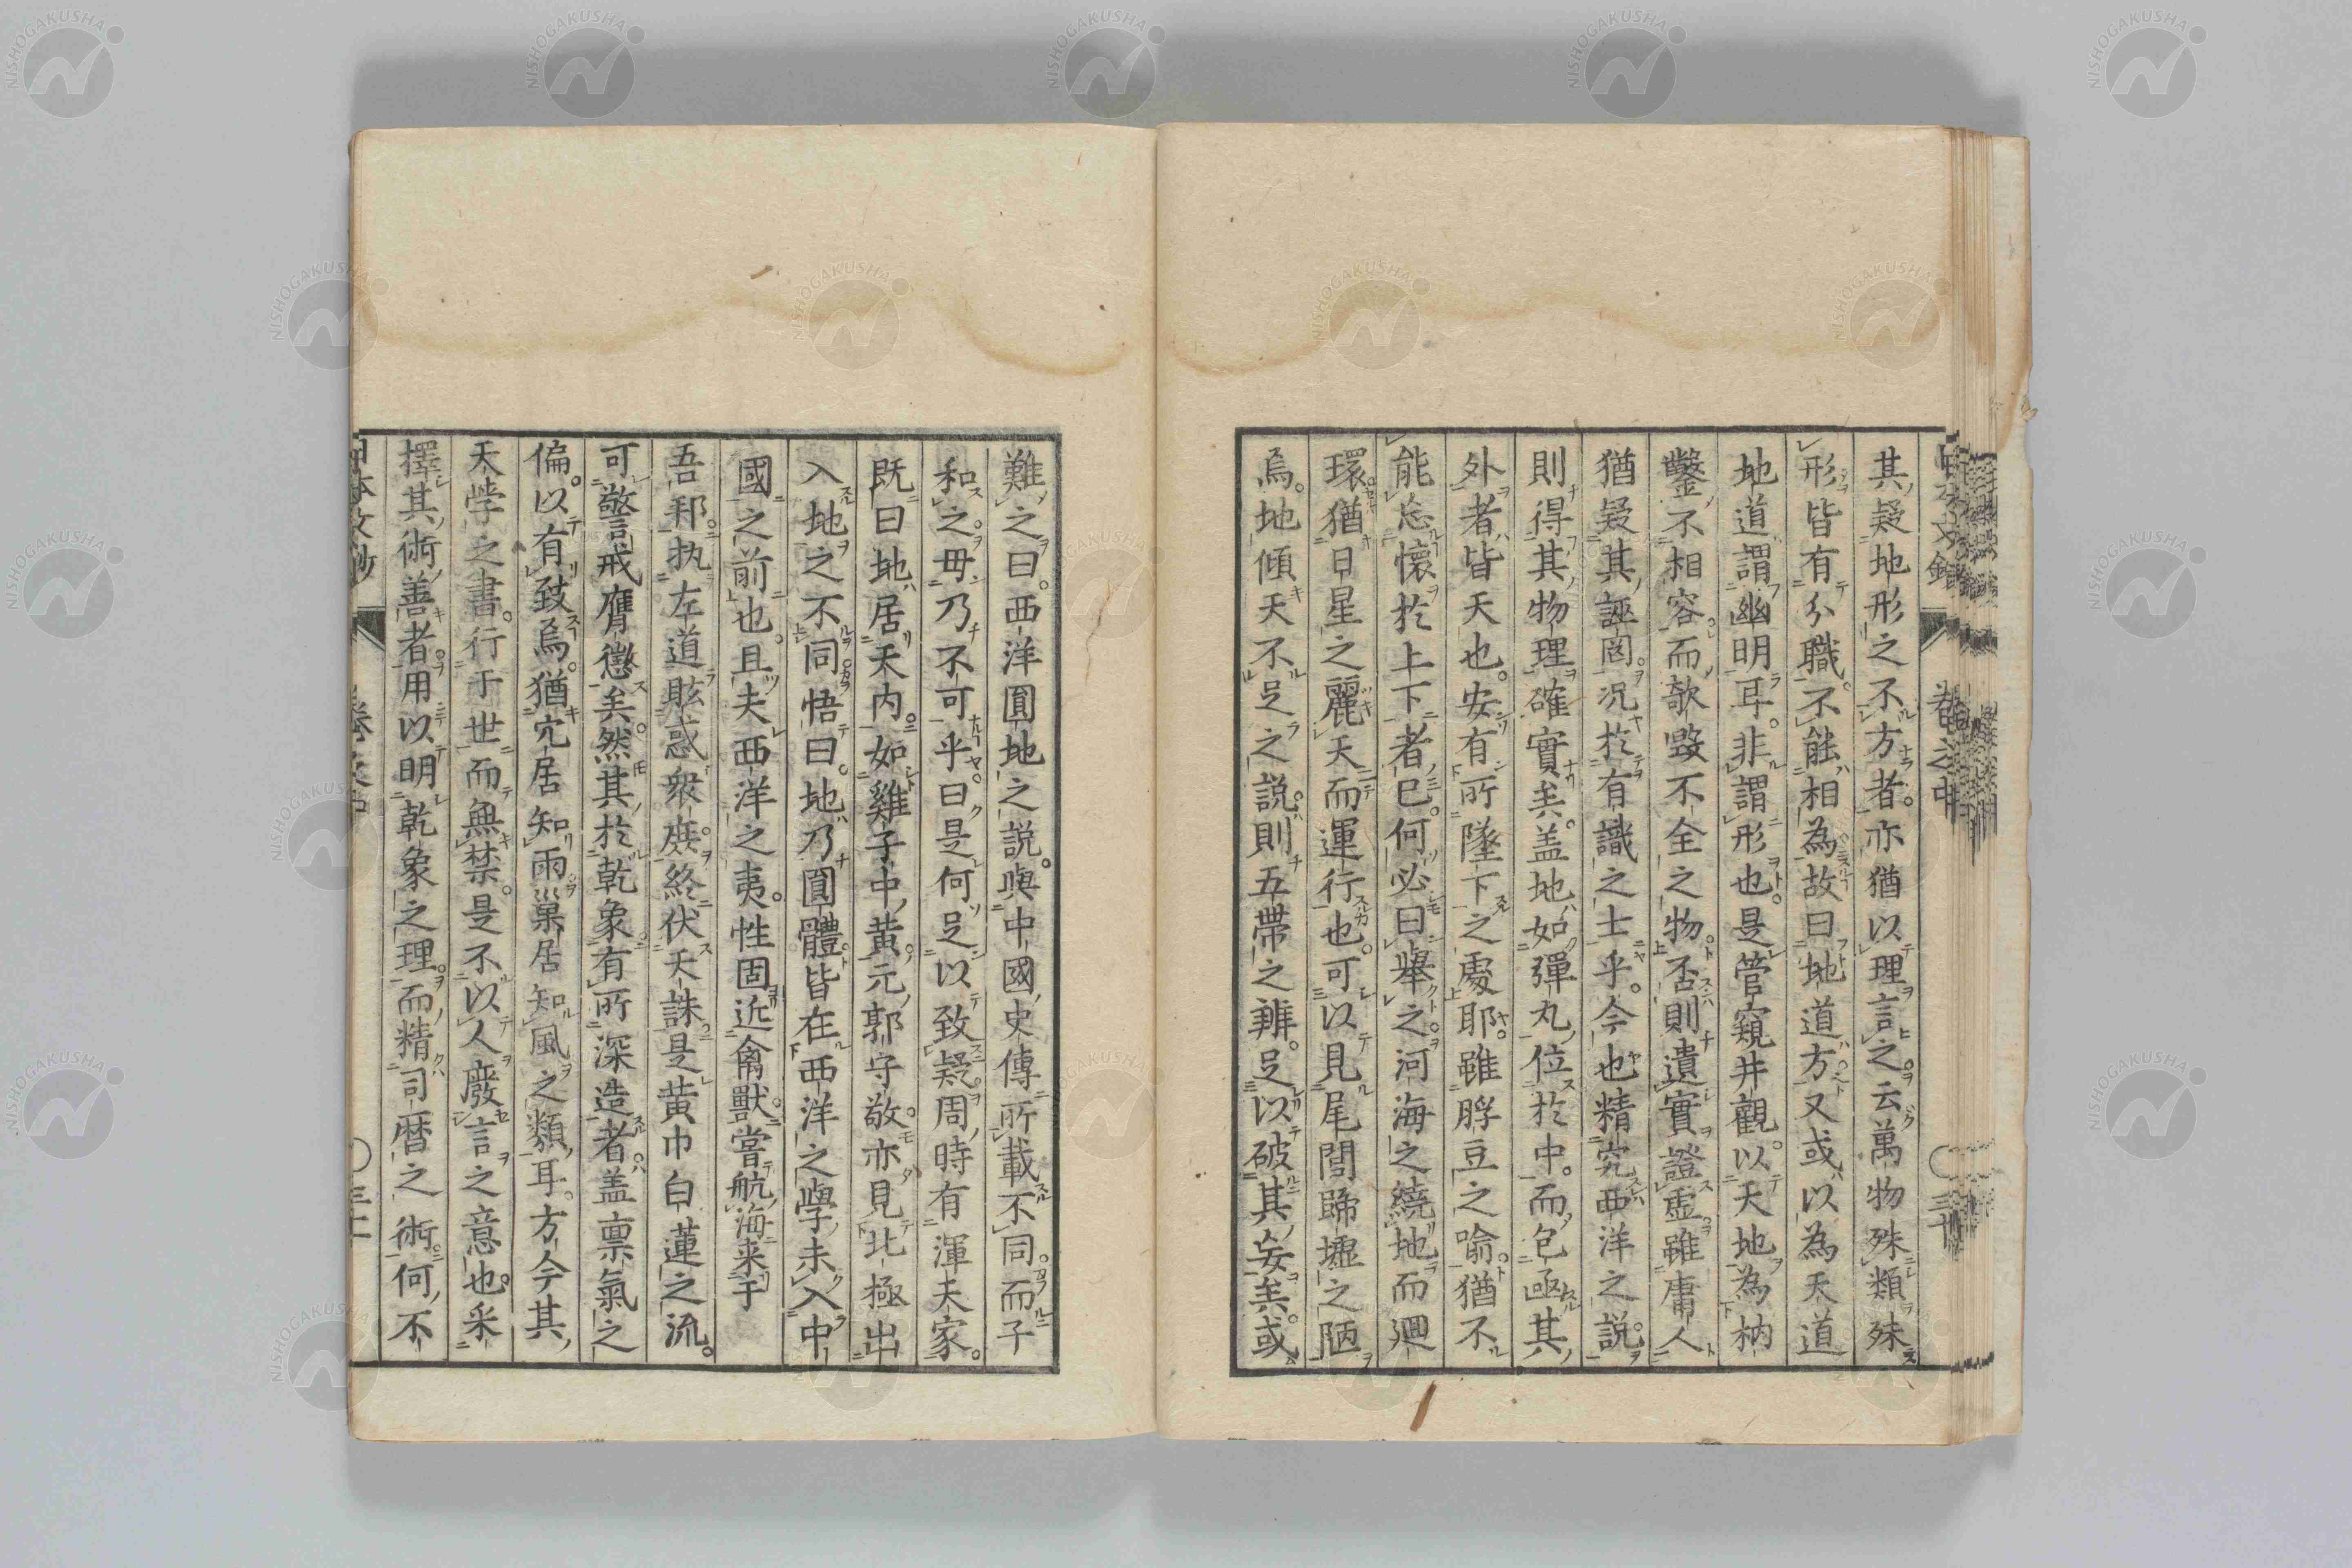 其疑地形之不方者。亦猶以理言之。云萬物殊類殊
形皆有分職。不能相為故曰地道方又或以為天道
地道謂幽明耳。非謂形也。是管窺井觀。以天地為枘
鑿不相容而欹毀不全之物。否則遺實證虛雖庸人
猶疑其誣罔。况於有識之士乎。今也精究西洋之説。
則得其物理確實矣。盖地如彈丸位於中。而包函其
外者皆天也。安有所墜下之處耶。雖脬豆之喻。猶不
能忘懷於上下者已。何必曰舉之。河海之繞地而廻
環。猶日星之麗天而運行也。可以見尾閭歸墟之陋
焉。地傾天不足之説。則五帶之辨。足以破其妄矣。或
難之曰。西洋圓地之説。與中國史傳所載不同。而子
和之。毋乃不可乎。曰是何足以致疑。周時有渾天家。
既曰地居天内。如雞子中黄。元郭守敬亦見北極出
入地之不同。悟曰。地乃圓體。皆在西洋之學未入中
國之前也。且夫西洋之夷。性固近禽獸。嘗航海来于
吾邦。执左道眩惑衆庶。終伏天誅是黄巾白蓮之流。
可警戒膺懲矣。然其於乾象有所深造者。盖禀氣之
偏。以有致焉。猶穴居知雨巢居知風之類耳。方今其
天学之書。行于世而無禁。是不以人廢言之意也。采
擇其術善者。用以明乾象之理。而精司暦之術。何不
卷之中